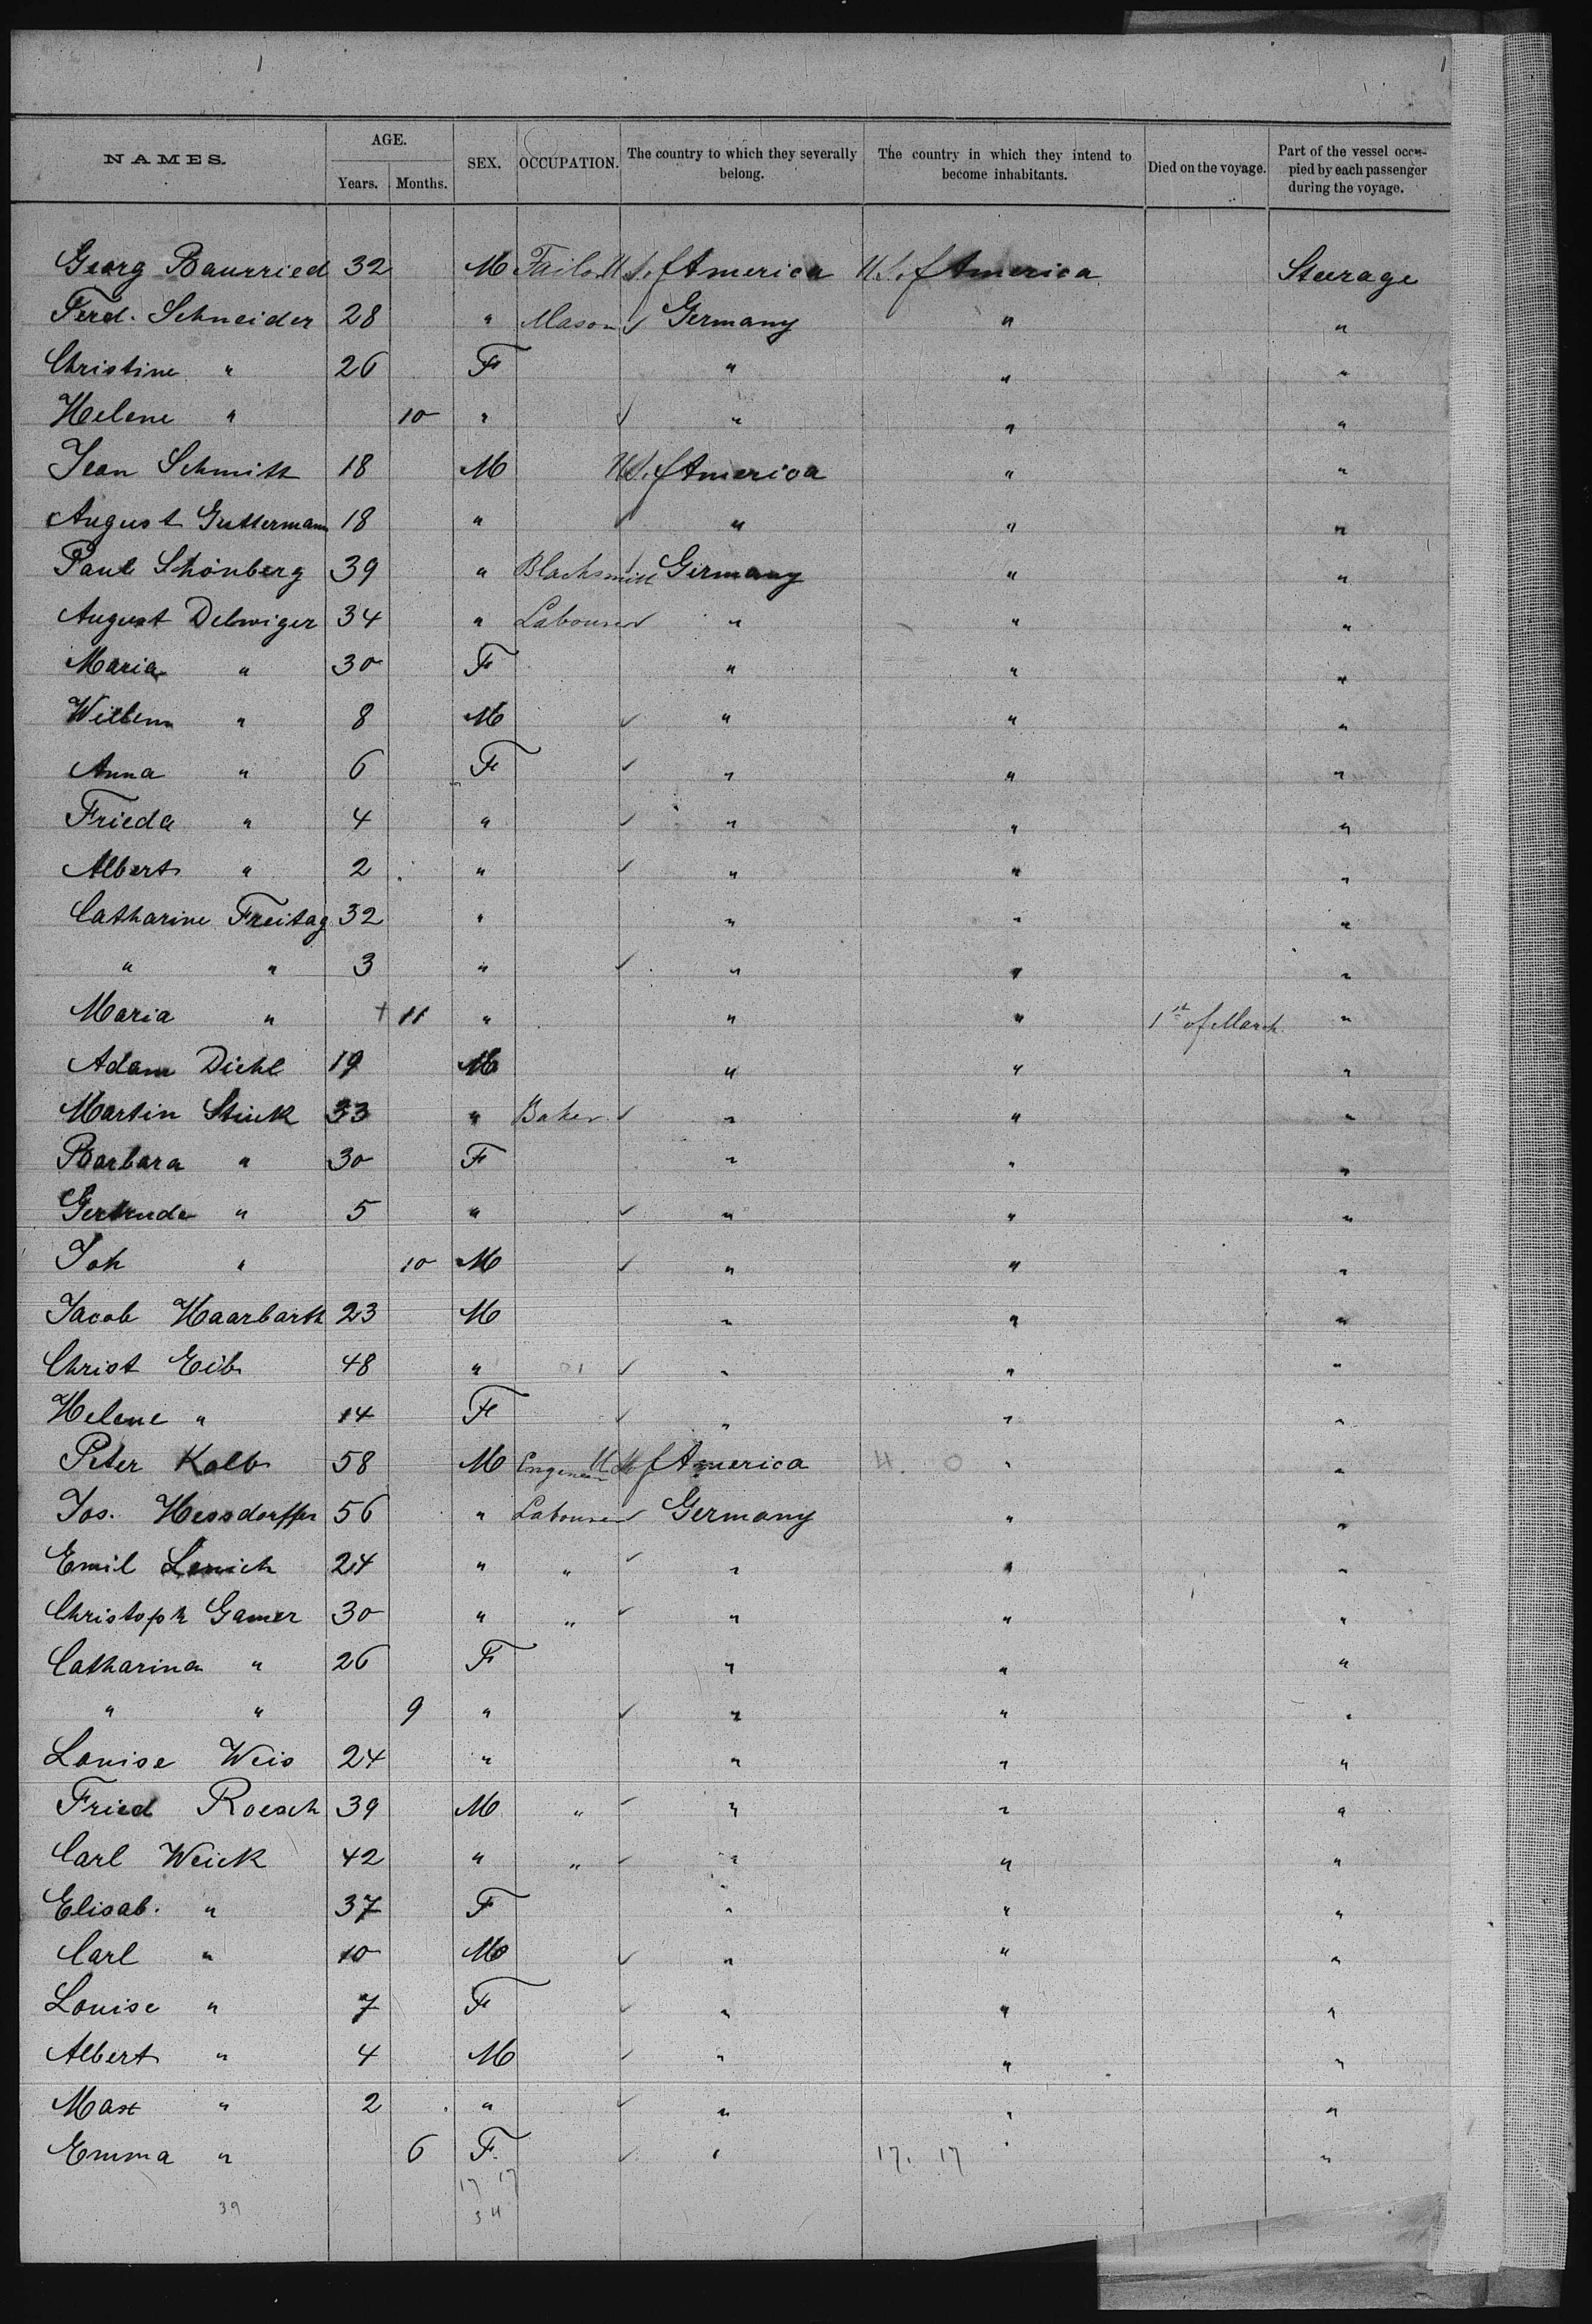 NAMES. AGE. Years. Months. SEX. OCCUPATION. The country to which they severally belong. The country in which they intend to become inhabitants. Died on the voyage. Part of the vessel occupied by each passenger during the voyage.
Georg Baurried 32 M Tailor U.S. of America U.S. of America Steerage
Ferd. Schneider 28 " Mason Germany " "
Christine " 26 F " " "
Helene " 10 " " " "
Jean Schmitt 18 M U.S. of America " "
August Guttermann 18 " " " "
Paul Schönberg 39 " Blacksmith Germany " "
August Delwiger 34 " Labourer " " "
Maria " 30 F " " "
Willem " 8 M " " "
Anna " 6 F " " "
Frieda " 4 " " " "
Albert " 2 " " " "
Catharine Freitag 32 " " " "
" " 3 " " " "
Maria " + 11 " " " 1st of March "
Adam Diehl 19 M " " "
Martin Stuck 33 " Baker " " "
Barbara " 30 F " " "
Gertrude " 5 " " " "
Joh " 10 M " " "
Jacob Haarbarth 23 M " " "
Christ Eib 48 " " " "
Helene " 14 F " " "
Peter Kolb 58 M Engineer U.S. of America " "
Jos. Hessdorffer 56 " Labourer Germany " "
Emil Lenich 24 " " " " "
Christoph Gamer 30 " " " " "
Catharina " 26 F " " "
" " 9 " " " "
Louise Weis 24 " " " "
Fried Roesch 39 M " " " "
Carl Weick 42 " " " " "
Elisab. " 37 F " " "
Carl " 10 M " " "
Louise " 7 F " " "
Albert " 4 M " " "
Max " 2 " " " "
Emma " 6 F. " 17. 17 " "
17 17
39 34